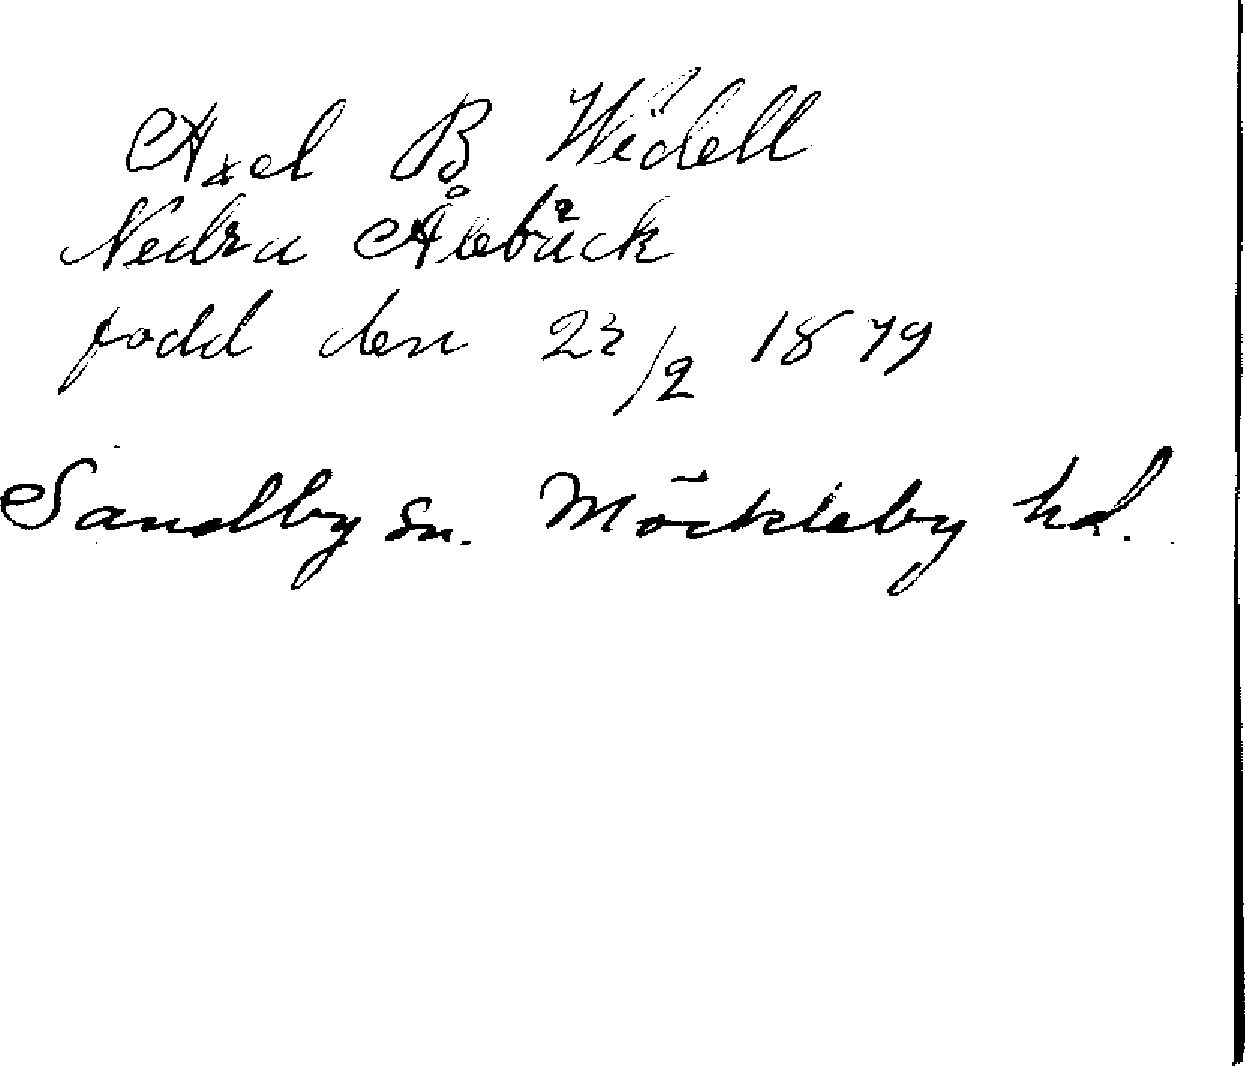 Axel B Widell
Nedra Ålebäck
född den 23/2 1879
Sandby sn. Möckleby hd.